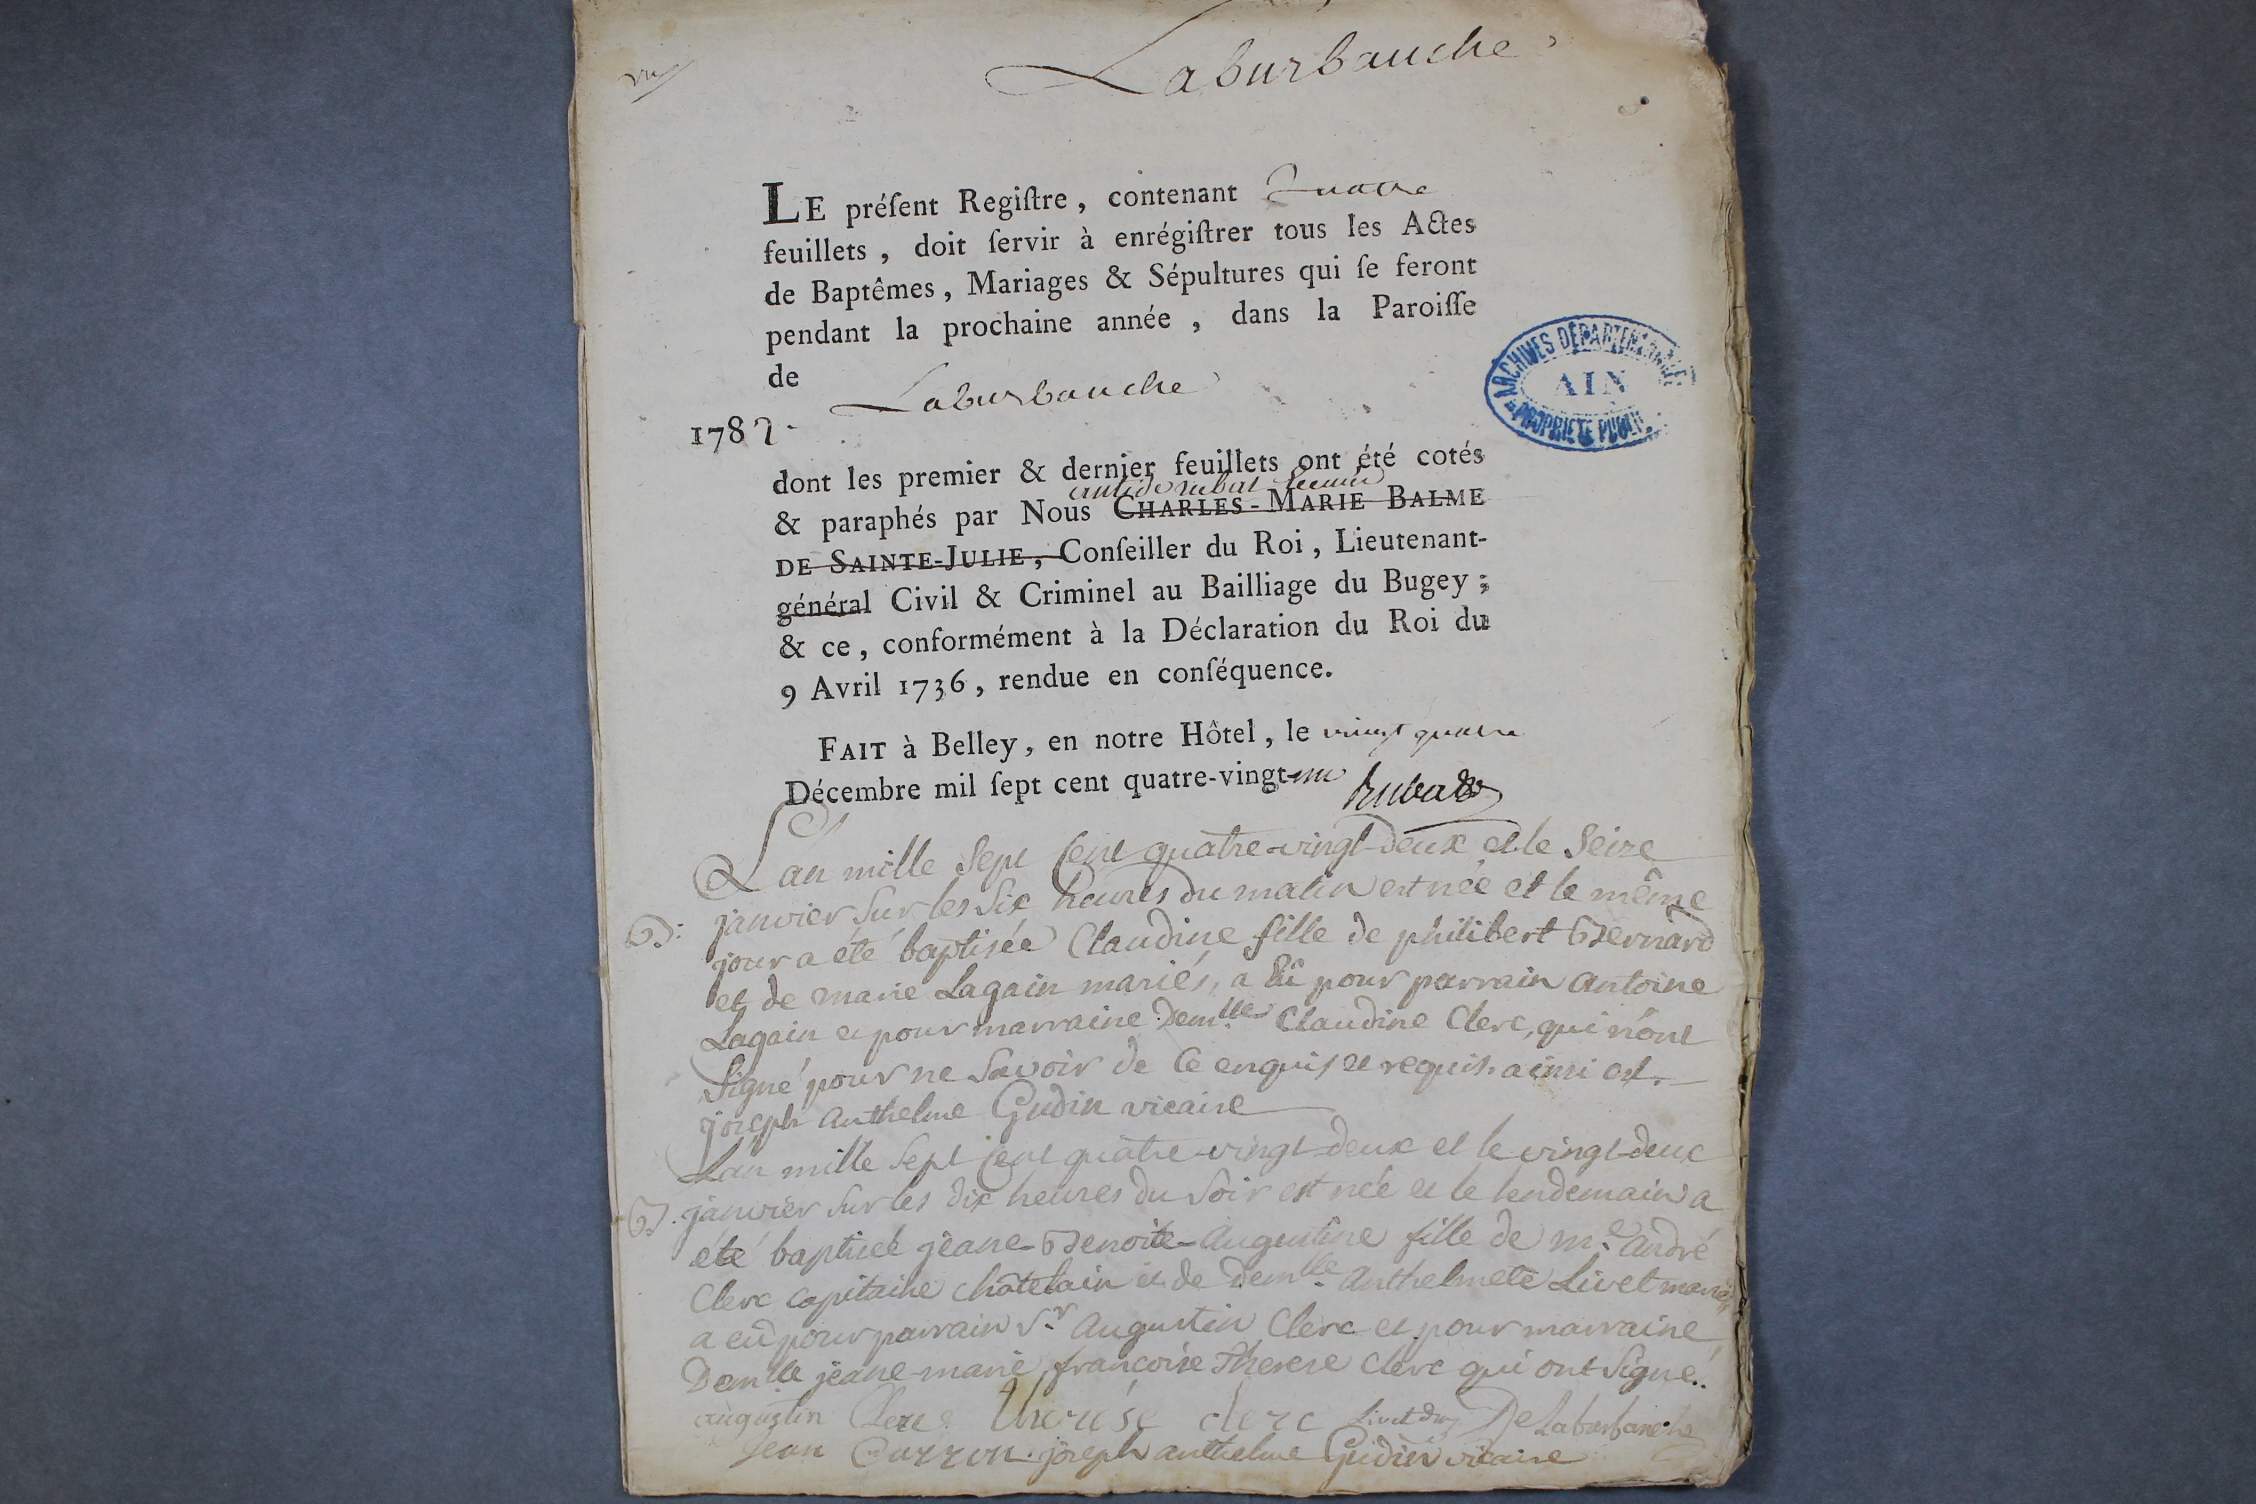 Laburbanche
LE préſent Regiſtre, contenant quatre
feuillets, doit ſervir à enrégiſtrer tous les Actes
de Baptêmes, Mariages & Sépultures qui ſe feront
pendant la prochaine année, dans la Paroiſſe
de Laburbanche
1782.
dont les premier & dernier feuillets ont été cotés
& paraphés par Nous CHARLES-MARIE BALME
DE SAINTE-JULIE, Conſeiller du Roi, Lieutenant-
général Civil & Criminel au Bailliage du Bugey;
& ce, conformément à la Déclaration du Roi du
9 Avril 1736, rendue en conſéquence.
FAIT à Belley, en notre Hôtel, le vingt quatre
Décembre mil ſept cent quatre-vingt-un
Rubat
ARCHIVES DÉPARTEMENTALES
AIN
PROPRIÉTÉ PUBLIQUE
L'an mille Sept Cent quatre-vingt-deux et le Seize
B: janvier Sur les Six heures du matin est née et le même
jour a été baptisée Claudine fille de philibert Bernard
et de marie Lagain mariés, a Eû pour parrain antoine
Lagain et pour marraine Dem.lle Claudine Clerc, qui n'ont
Signé pour ne Savoir de Ce enquis et requis. ainsi est.
joseph Anthelme Gudin vicaire
L'an mille Sept Cent quatre-vingt-deux et le vingt-deux
B. janvier Sur les dix heures du Soir est née et le lendemain a
été baptisée jeane-Benoite-Augustine fille de m.e André
Clerc capitaine châtelain et de dem.lle Anthelmete Livet mariés
a eû pour parrain S.r Augustin Clerc et pour marraine
Dem.lle jeane-marie françoise Therese Clerc qui ont Signé.
augustin Clerc therése clerc De Laburbanche
Jean Cuzzon. joseph anthelme Gudin vicaire